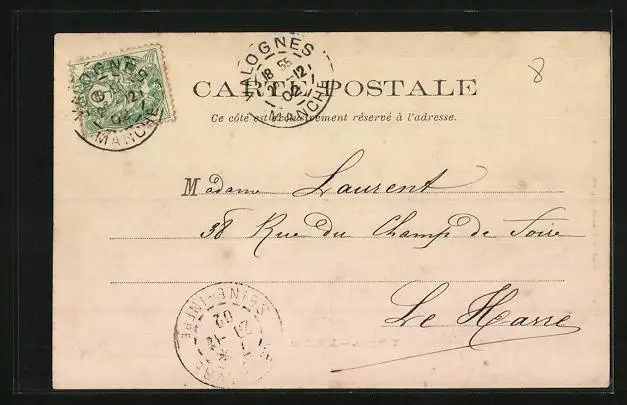 VALOGNES
MANCHE
8
VALOGNES
18 55
-12
02
MANCHE
CARTE POSTALE
Ce côté est exclusivement réservé à l'adresse.
Madame Laurent
38 Rue du Champ de Foire
Le Havre
SEINE-INFRE
02